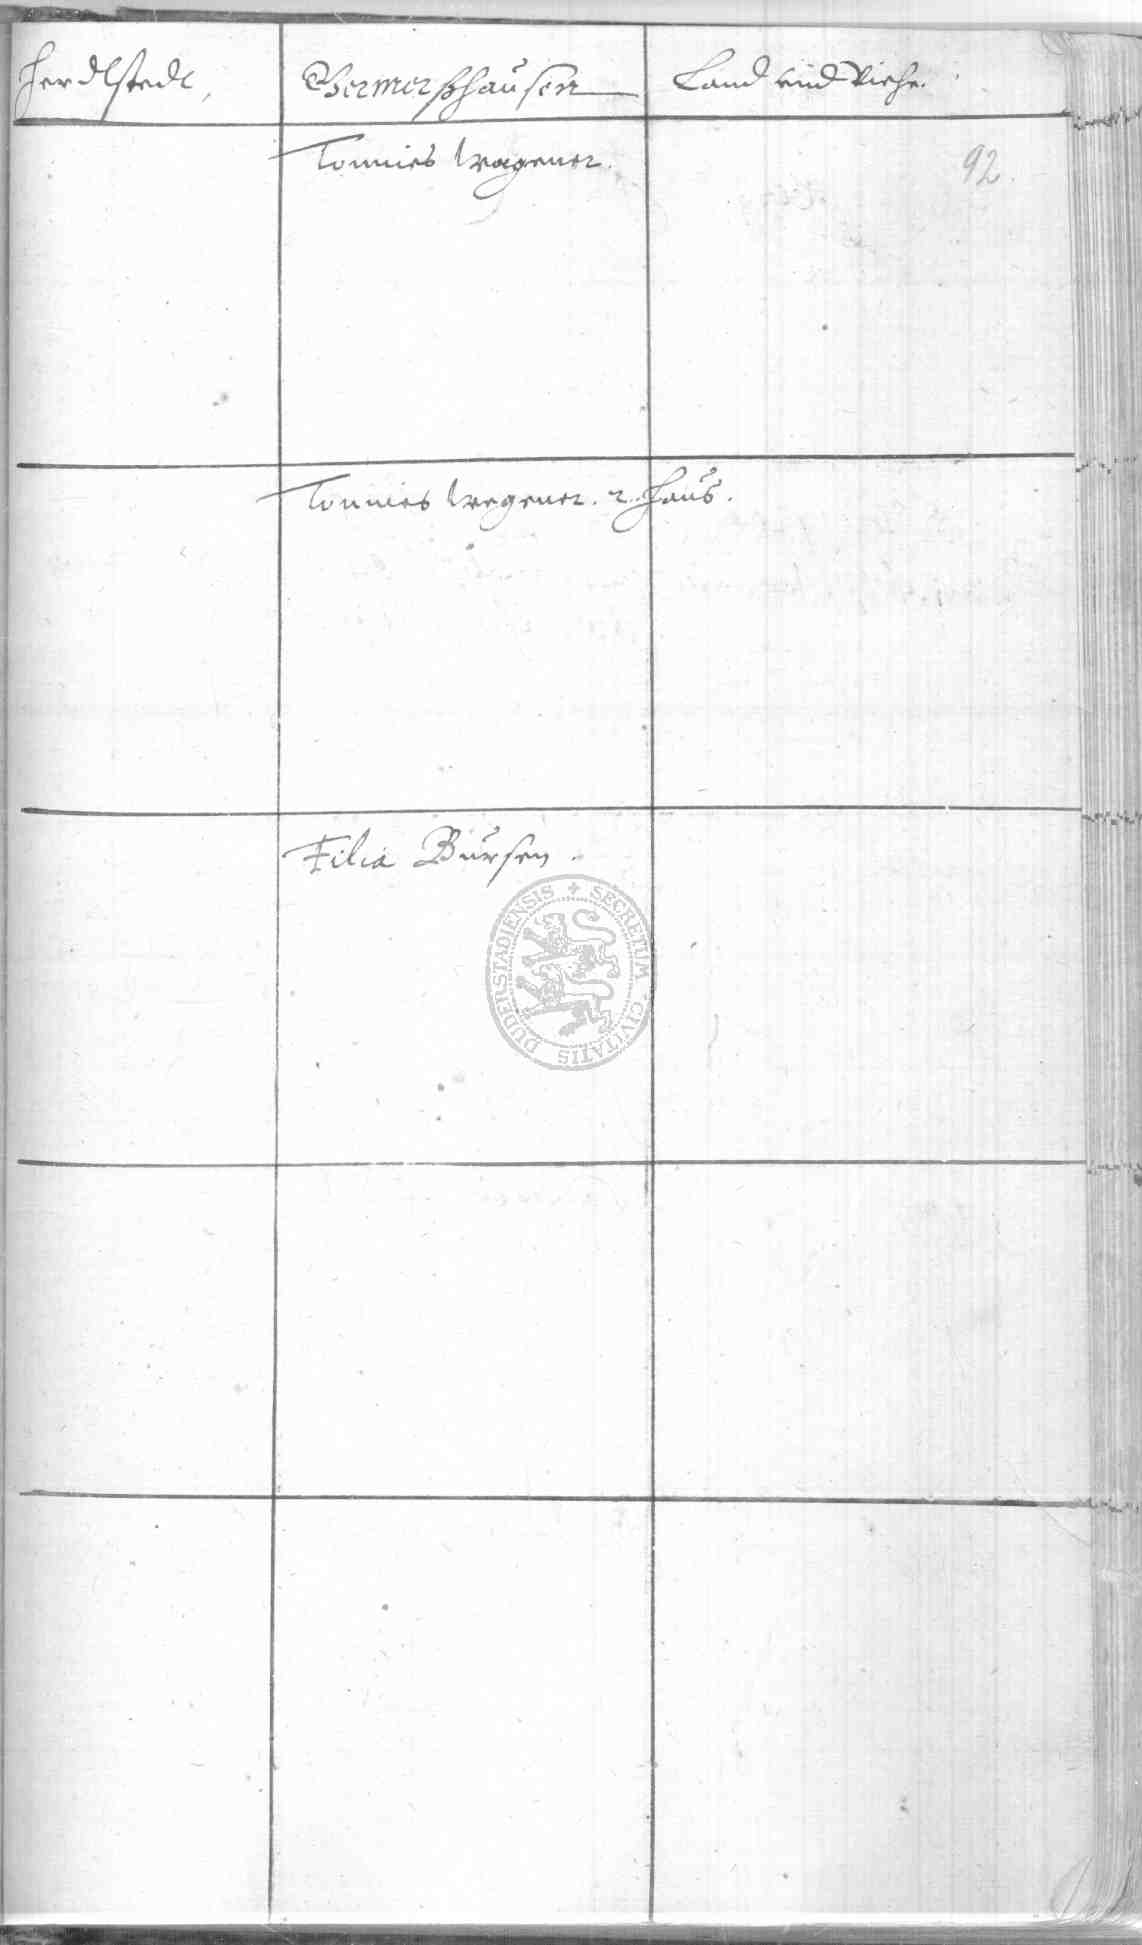 Herdtstedt,
Germerßhausen
Land und Viehe.
92.
Tonnies Wagener.
Tonnies Wegener. 2. Hauß.
Filia Bursen.
SECRETUM CIVITATIS DUDERSTADIENSIS